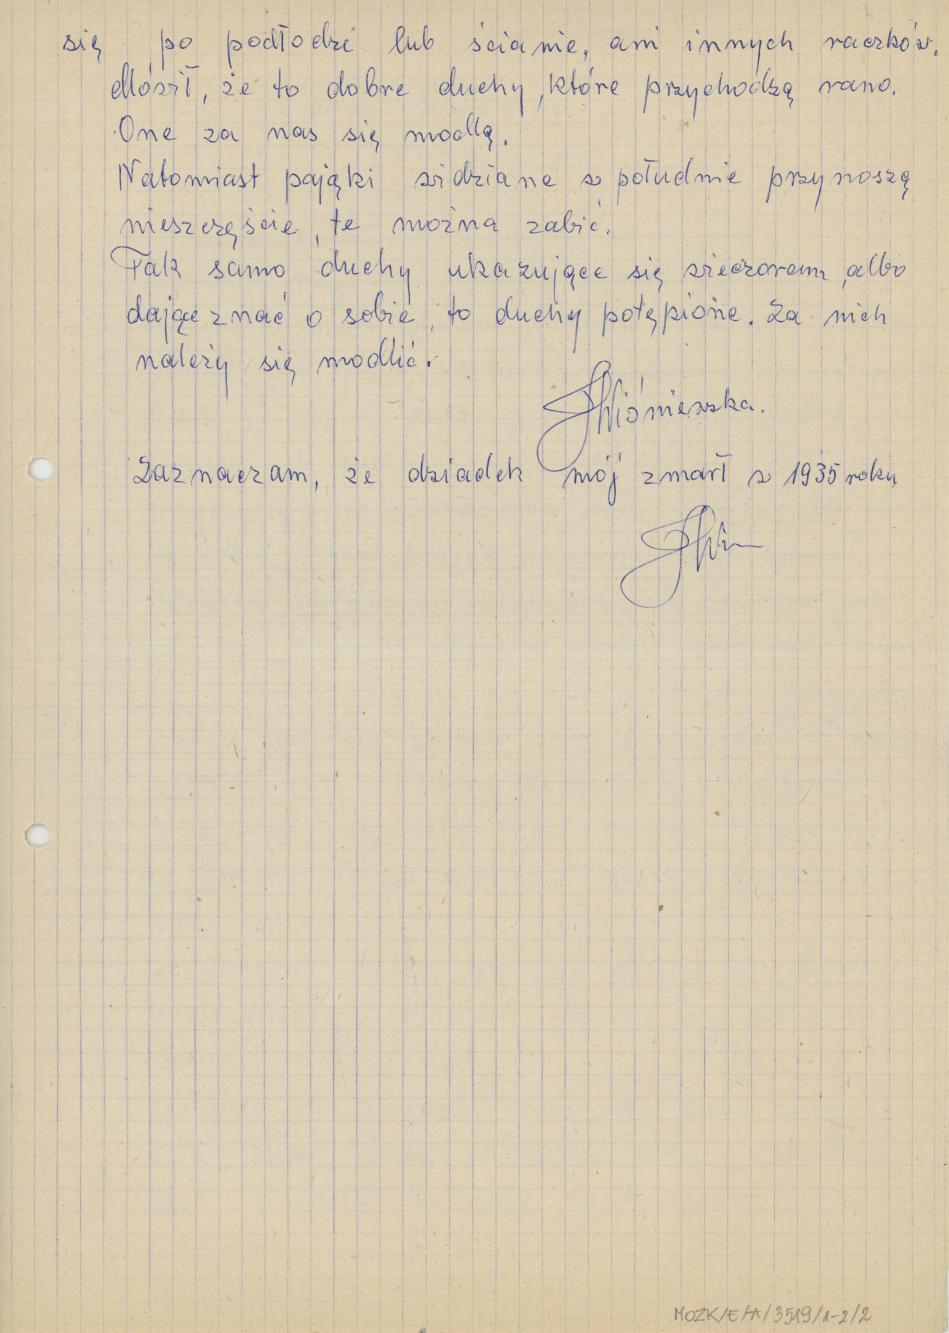 się po podłodze lub ścianie, ani innych raczków.
Mówił, że to dobre duchy, które przychodzą rano.
One za nas się modlą.
Natomiast pająki widziane w południe przynoszą
nieszczęście, te można zabić.
Tak samo duchy ukazujące się wieczorem, albo
dające znać o sobie, to duchy potępione. Za nich
należy się modlić.
Wiśniewska.
Zaznaczam, że dziadek mój zmarł w 1935 roku
MOZK/E/A/3519/1-2/2